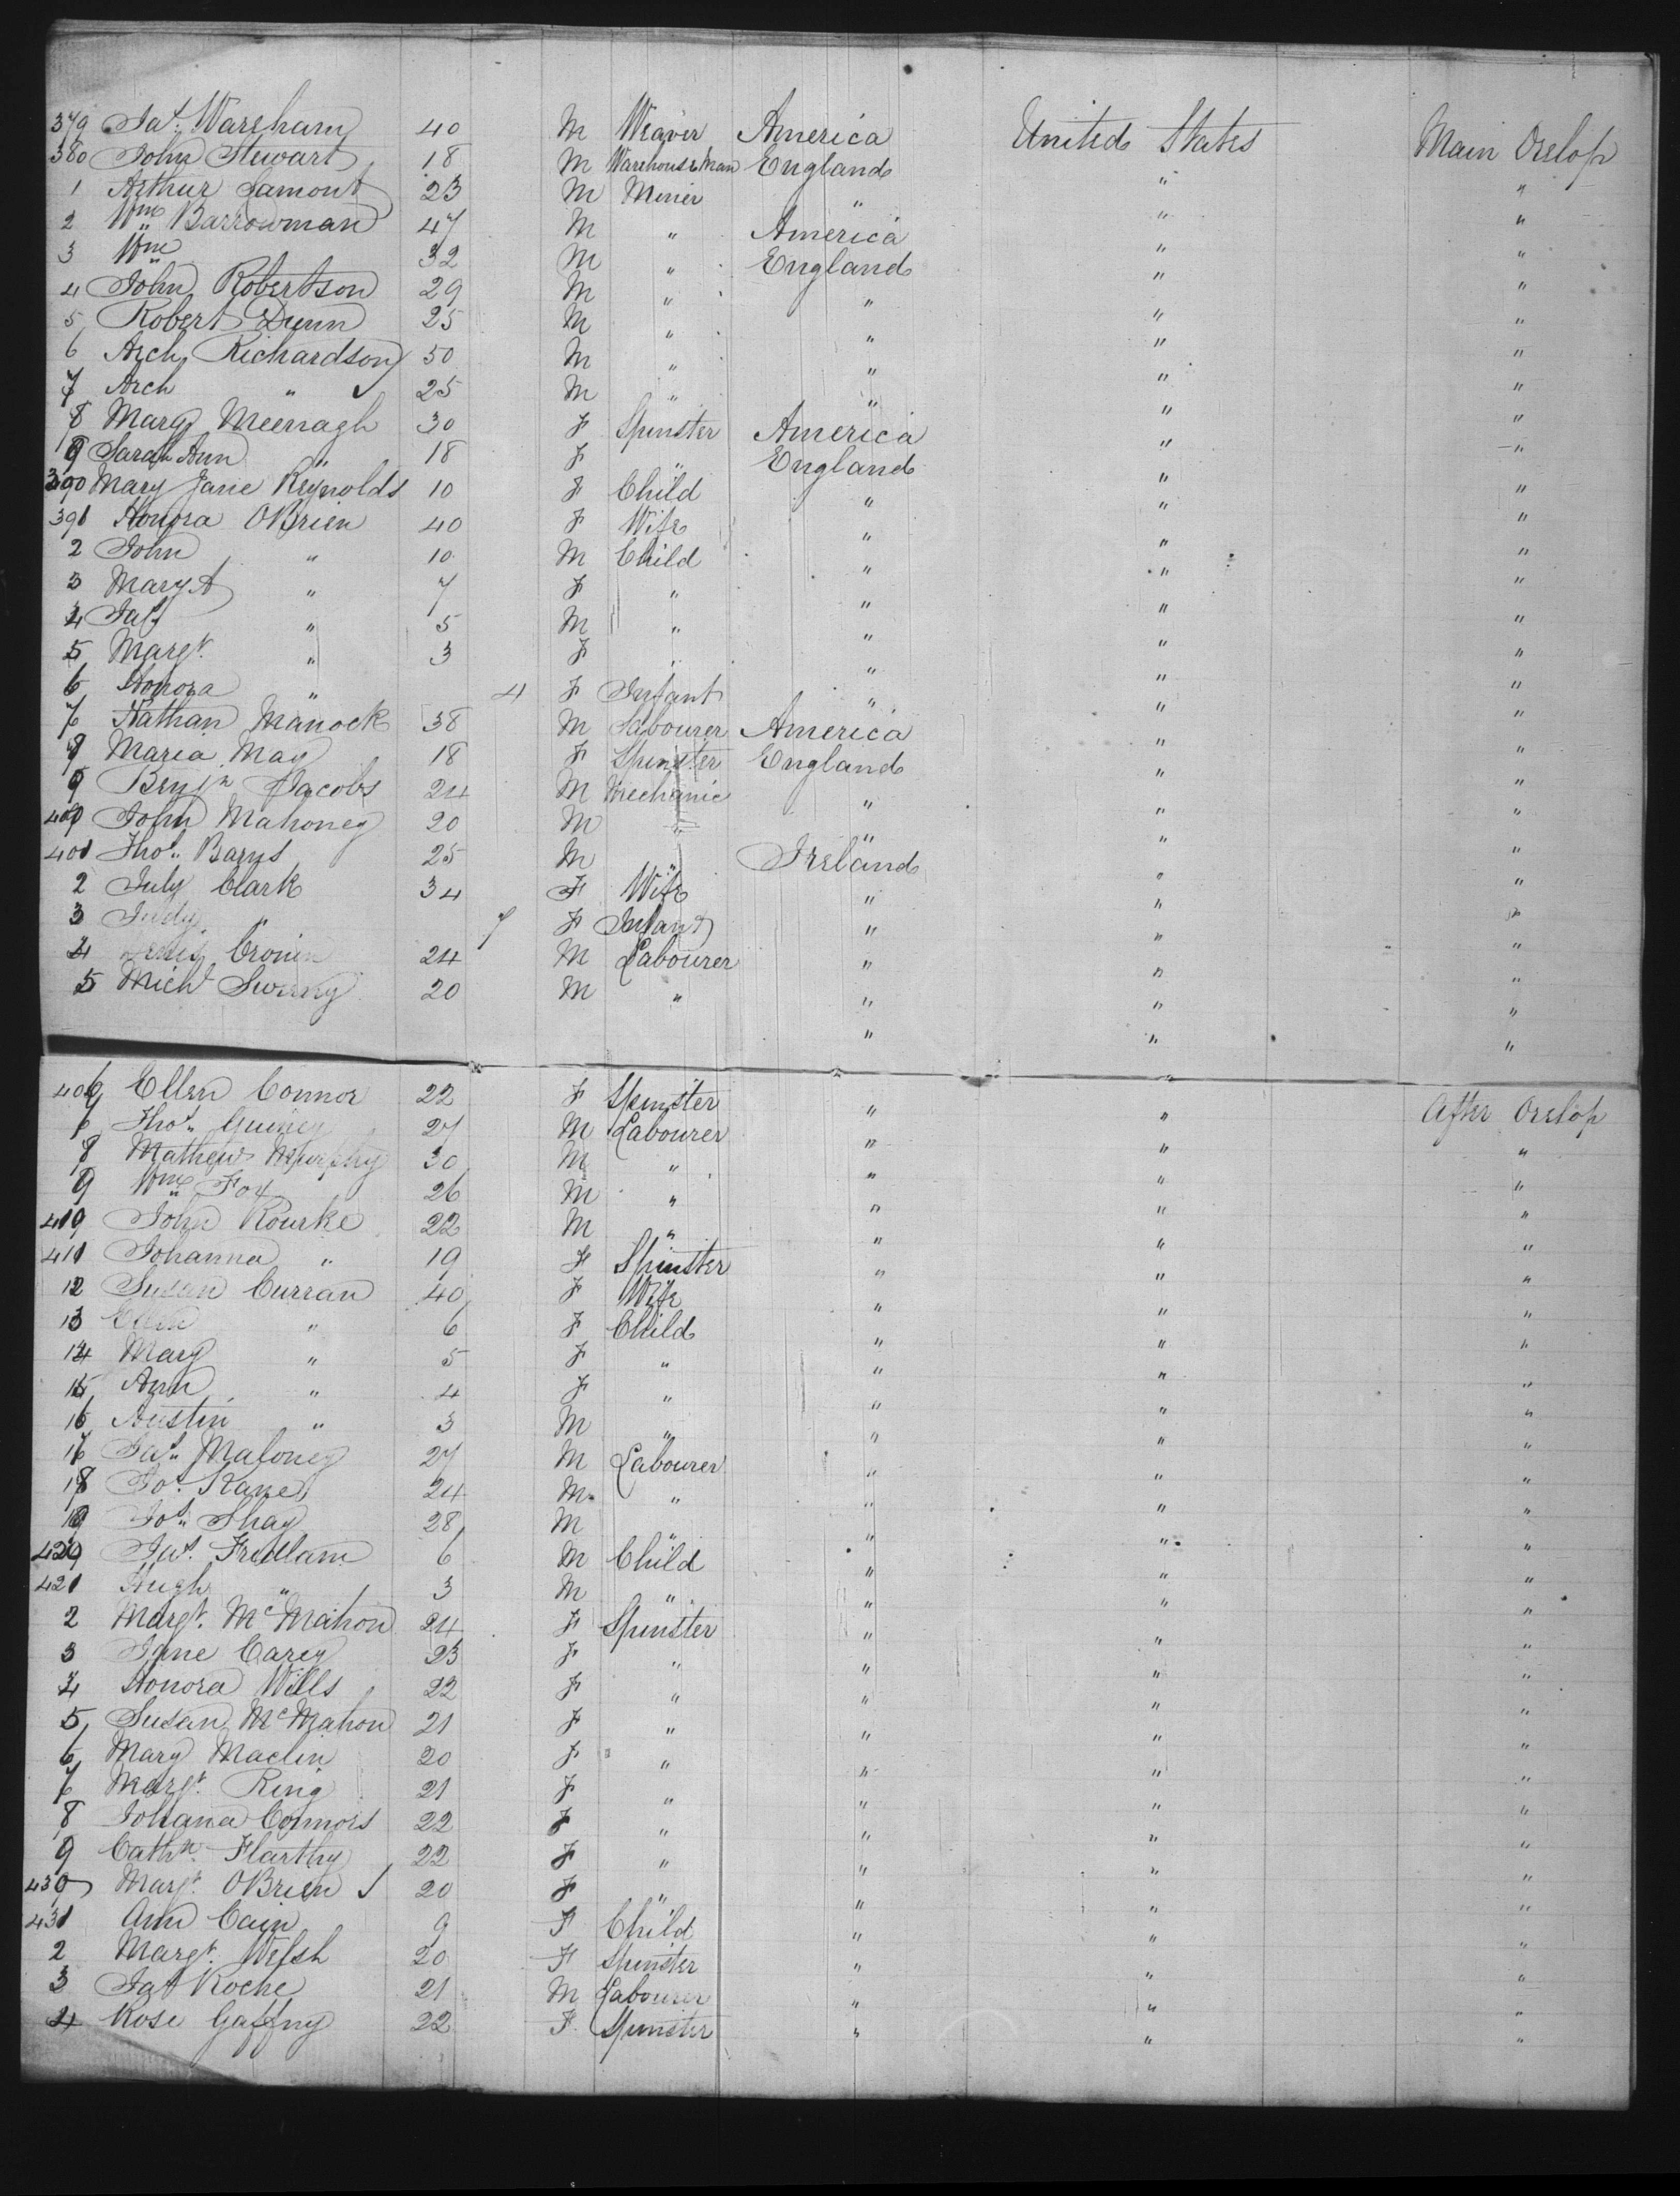 379 Jas. Wareham 40 M Weaver America United States Main Orelop
380 John Stewart 18 M Warehouse Man England " "
1 Arthur Lamont 23 M Miner " " "
2 Wm Barrowman 47 M " America " "
3 Wm " 32 M " England " "
4 John Robertson 29 M " " " "
5 Robert Dunn 25 M " " " "
6 Arch Richardson 50 M " " " "
7 Arch " 25 M " " " "
8 Marg Meenagh 30 F Spinster America " "
9 Sarah Ann " 18 F " England " "
390 Mary Jane Reynolds 10 F Child " " "
391 Honora OBrien 40 F Wife " " "
2 John " 10 M Child " " "
3 Mary A " 7 F " " " "
4 Jas " 5 M " " " "
5 Margt. " 3 F " " " "
6 Honora " 4 F Infant " " "
7 Nathan Manock 38 M Labourer America " "
8 Maria May 18 F Spinster England " "
9 Benjn Jacobs 24 M Mechanic " " "
400 John Mahoney 20 M " " " "
401 Thos. Barns 25 M " Ireland " "
2 July Clark 34 F Wife " " "
3 Judy " 7 F Infant " " "
4 Cronin 24 M Labourer " " "
5 Michl Sweeny 20 M " " " "
" " "
406 Ellen Connor 22 F Spinster " " After Orelop
7 Thos. Guiney 27 M Labourer " " "
8 Mathew Murphy 30 M " " " "
9 Wm Fox 26 M " " " "
410 John Rourke 22 M " " " "
411 Johanna " 19 F Spinster " " "
12 Susan Curran 40 F Wife " " "
13 Ellen " 6 F Child " " "
14 Mary " 5 F " " " "
15 Ann " 4 F " " " "
16 Austin " 3 M " " " "
17 Jas. Maloney 27 M Labourer " " "
18 Jo. Kane 24 M " " " "
19 Jos. Shay 28 M " " " "
420 Jas. 6 M Child " " "
421 Hugh " 3 M " " " "
2 Margt. McMahon 24 F Spinster " " "
3 Jane Carey 23 F " " " "
4 Honora Wills 22 F " " " "
5 Susan McMahon 21 F " " " "
6 Mary Maclin 20 F " " " "
7 Margt. Ring 21 F " " " "
8 Johana Connors 22 F " " " "
9 Cathn. Flarthy 22 F " " " "
430 Margt. OBrien 20 F " " " "
431 Ann Cain 9 F Child " " "
2 Margt. Welsh 20 F Spinster " " "
3 Jas Roche 21 M Labourer " " "
4 Rose Gaffny 22 F Spinster " " "